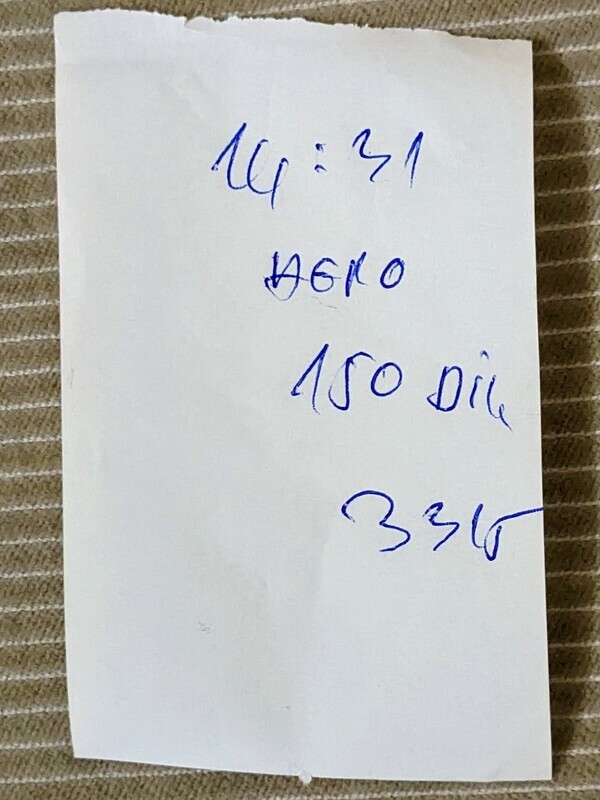 14:31
AERO
150 Dik
335